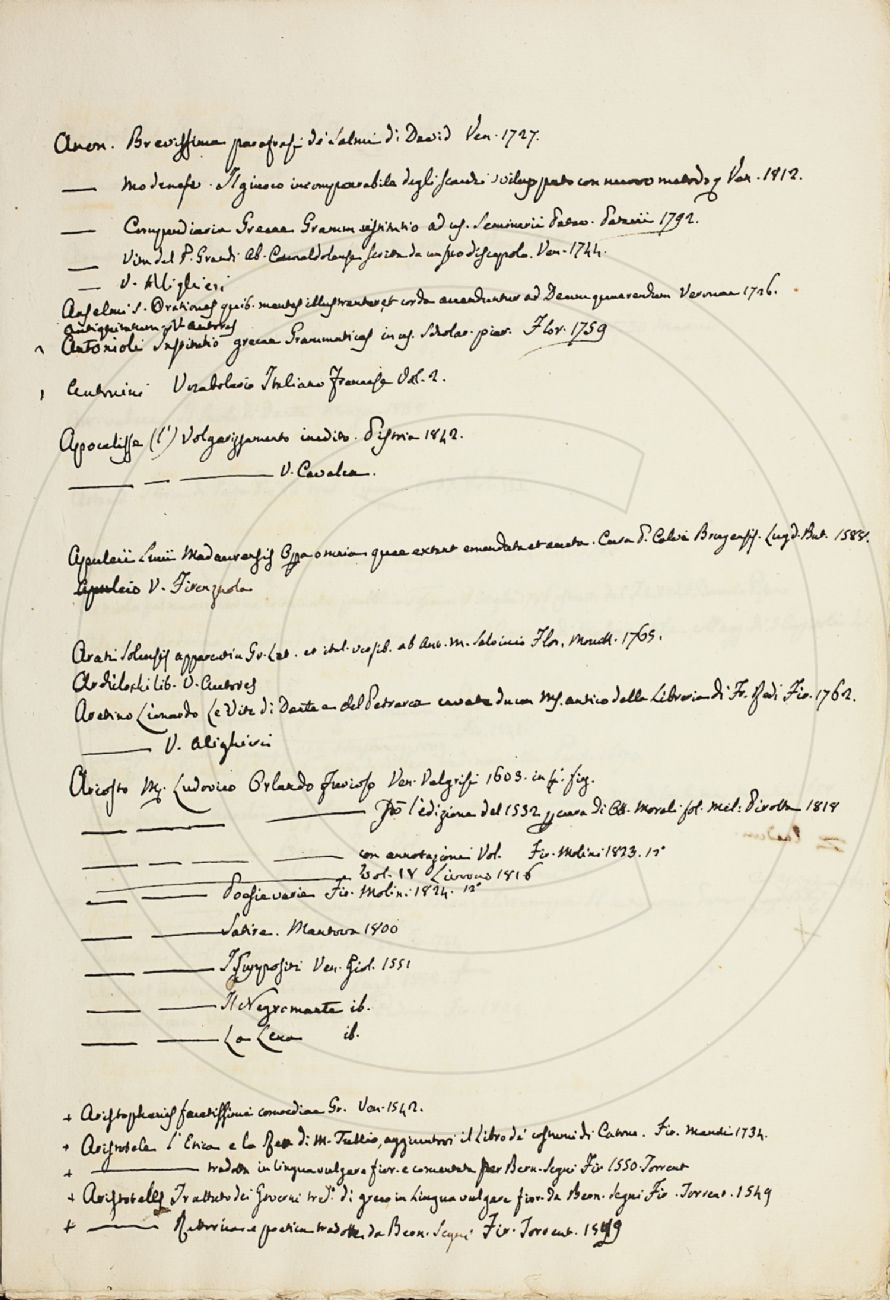 Anon. Brevissima parafrasi de' Salmi di David Ven. 1727.
— Modenese. Il giuoco incomparabile degli scacchi sviluppato con nuovo metodo Ven. 1812.
— Compendiaria Graecae Gramm. institutio ad us. Seminarii Patav. Patavii 1792.
— Vita del P. Grandi Ab. Camaldolense scritta da un suo discepolo. Ven. 1744.
— V. Allighieri
Anselmi S. Orationes quib. mentes illustrantur, et corda accenduntur ad Deum quaerendum Veronae 1726.
Antiquitatum V. autores
Antonioli Institutio graecae Grammatices in us. Scholar. piar. Flor. 1759
Antonini Vocabolario Italiano Francese Vol. 2.
Apocalisse (l') Volgarizzamento inedito. Pistoia 1842.
— — — V. Cavalca.
Appuleii Lucii Madaurensis Oppa omnia quae extant emendata et aucta. Cura P. Colvi Brugensis. Lugd. Bat. 1588.
Apuleio V. Firenzuola
Arati Solensis apparentia Gr. Lat. et ital. ab Ant. M. Salvinio Flor. Mouck. 1765.
Archilochi lib. V. Autores
Aretino Lionardo Le Vite di Dante e del Petrarca cavate da un Ms. antico della Libreria di Fr. Redi Fir. 1762.
— V. Alighieri
Ariosto M. Ludovico Orlando Furioso Ven. Valgrisi 1603. in 4. fig.
— — — l'edizione del 1532 cura di Ott. Morali fol. mil. Pirotta 1818
— — — — con annotazioni Vol. Fir. Molini 1823. 12°
— Vol. 18 Livorno 1816
— — Poesie varie Fir. Molini 1824. 12°
— — Satire. Mantova 1800
— — I Suppositi Ven. Giol. 1551
— — Il Negromante ib.
— — La Lena ib.
+ Aristophanis facetissimi comoediae Gr. Ven. 1542.
+ Aristotele l'Etica e la di M. Tullio, aggiuntovi il Libro de' costumi di Catone. Fir. Manni 1734.
+ — tradotta in lingua vulgare fior. e comentata per Bern. Segni Fir. 1550 Torrent
+ Aristoteles Trattato dei Governi di greco in Lingua vulgare fior. da Bern. Segni Fir. Torrent. 1549
+ — Rettorica e poetica tradotte da Bern. Segni Fir. Torrent. 1549